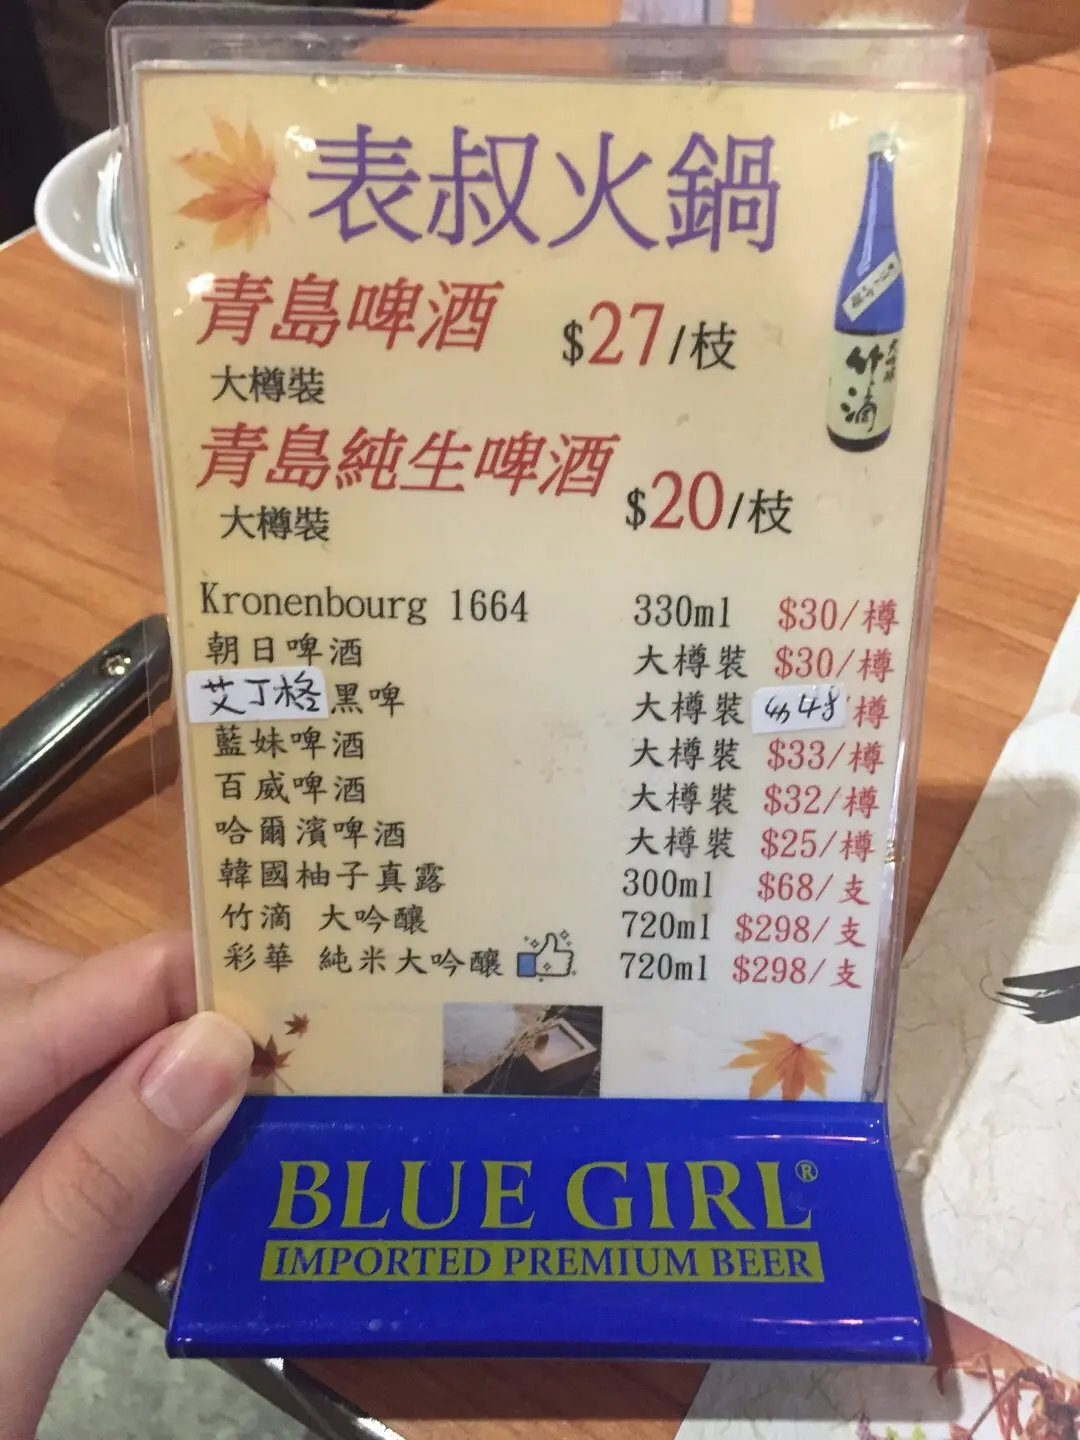 表叔火鍋
青島啤酒 $27/枝
大樽裝
青島純生啤酒 $20/枝
大樽裝
Kronenbourg 1664 330ml $30/樽
朝日啤酒 大樽裝 $30/樽
艾丁格黑啤 大樽裝 48/樽
藍妹啤酒 大樽裝 $33/樽
百威啤酒 大樽裝 $32/樽
哈爾濱啤酒 大樽裝 $25/樽
韓國柚子真露 300ml $68/支
竹滴 大吟釀 720ml $298/支
彩華 純米大吟釀 720ml $298/支
大吟釀
竹滴
BLUE GIRL®
IMPORTED PREMIUM BEER